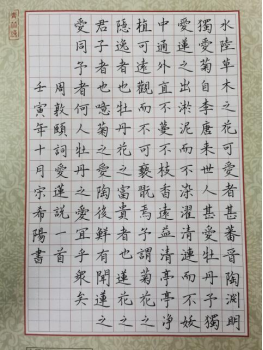 水陸草木之花可愛者甚蕃晉陶淵明
獨愛菊自李唐來世人甚愛牡丹予獨
愛蓮之出淤泥而不染濯清漣而不妖
中通外直不蔓不枝香遠益清亭亭淨
植可遠觀而不可褻翫焉予謂菊花之
隱逸者也牡丹花之富貴者也蓮花之
君子者也噫菊之愛陶後鮮有聞蓮之
愛同予者何人牡丹之愛宜乎眾矣
周敦頤詞愛蓮說一首
壬寅年十月宗希陽書